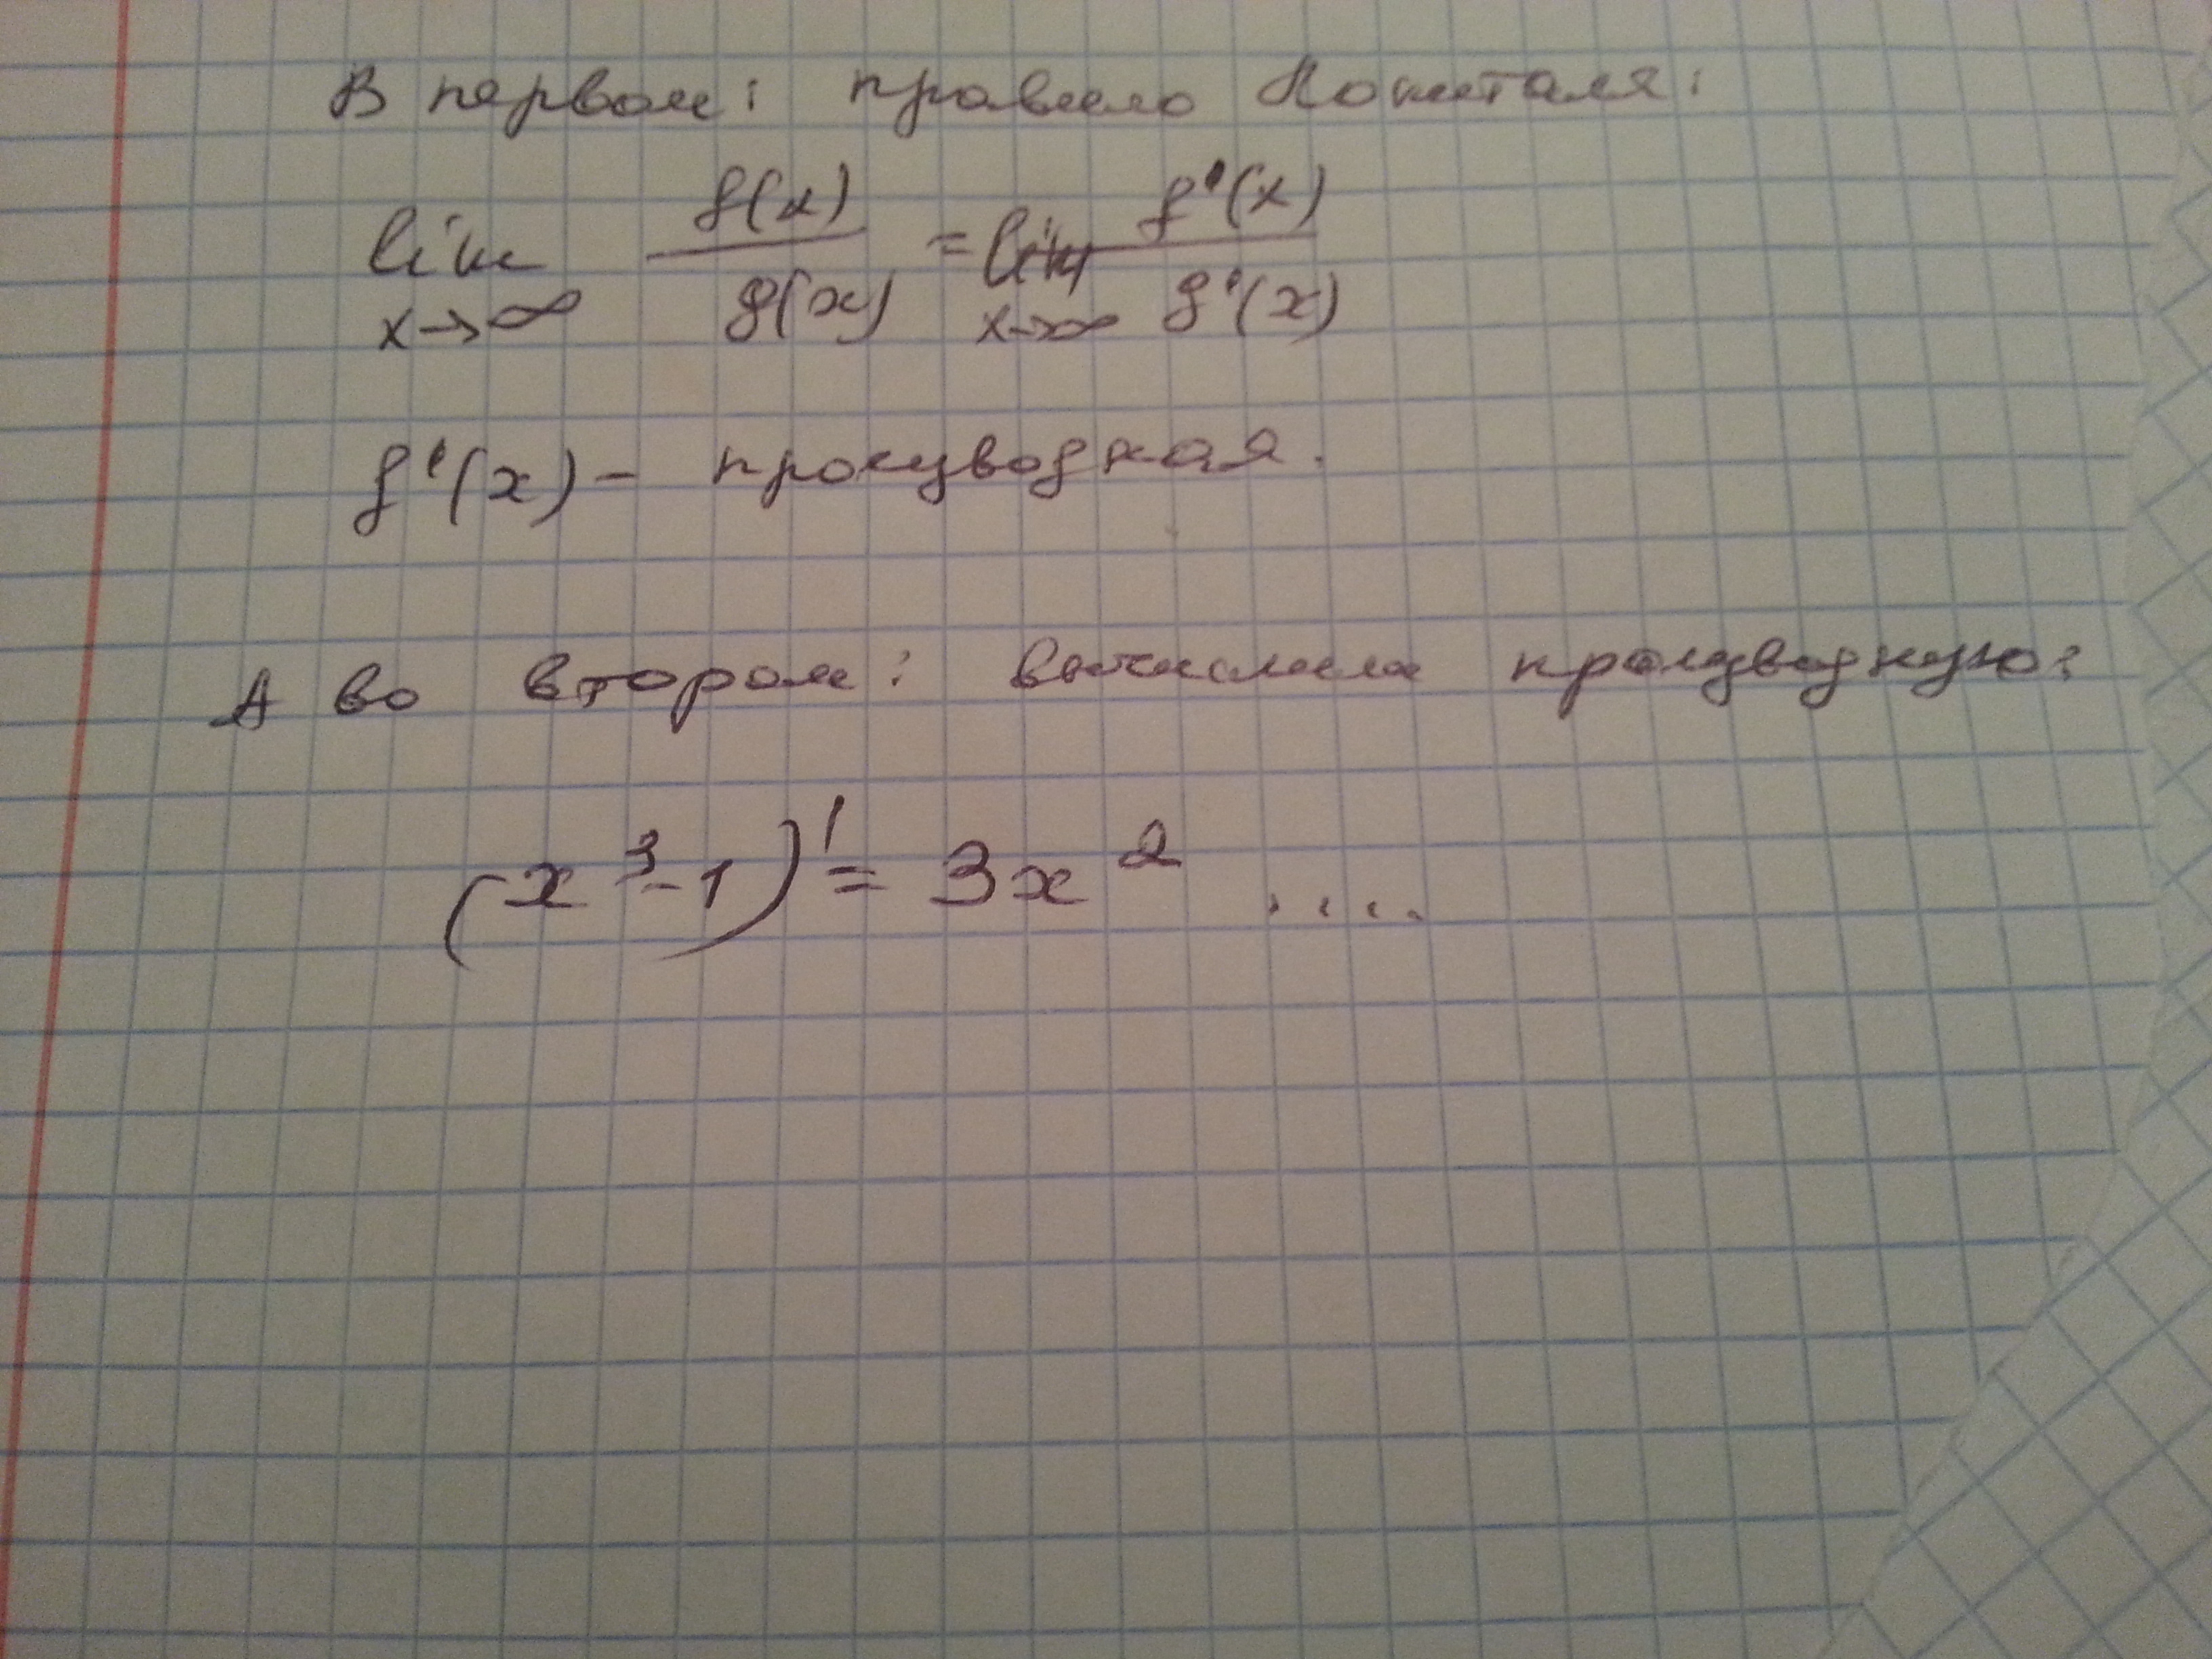 В первом: правило Лопиталя:
lim f(x)/g(x) = lim f'(x)/g'(x)
x→∞ x→∞
f'(x) – производная.
А во втором: вычислила производную:
(x³-1)' = 3x² ....